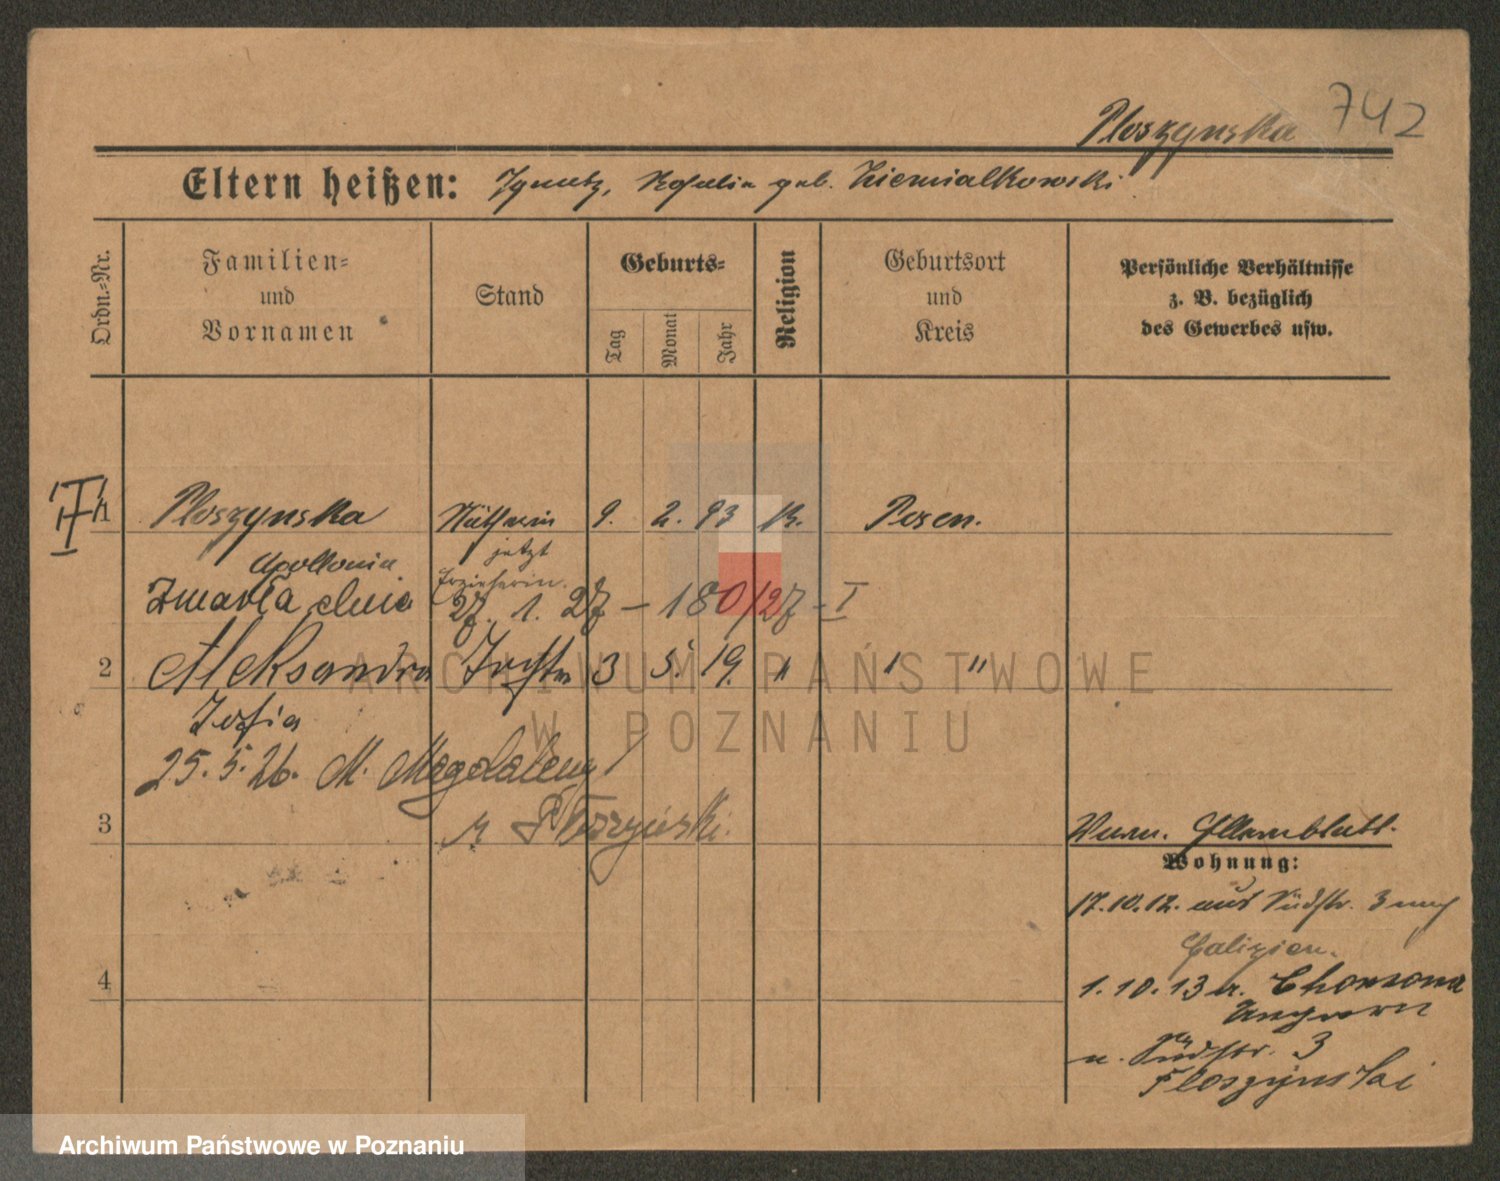 742
Ploszynska
Eltern heißen: Ignatz, Rosalia geb. Ziemialkowski
Ordn.=Nr.
Familien=
und
Vornamen
Stand
Geburts=
Tag
Monat
Jahr
Religion
Geburtsort
und
Kreis
Persönliche Verhältnisse
z. B. bezüglich
des Gewerbes usw.
1 Ploszynska Näherin 9. 2. 93 K. Posen.
Apollonia jetzt
Erzieherin.
Zmarła dnia 27. 1. 27 — 180/27 - I
2 Aleksandra Tochter 3 5. 19. " " "
Zofia
25.5.26. M. Magdaleny
Płoszyński.
3
4
Elternblatt.
Wohnung:
17.10.12. aus Südstr. 3 nach
Galizien.
1.10.13 a.
Ungarn
n. Südstr. 3
Ploszynski
ARCHIWUM PAŃSTWOWE
W POZNANIU
Archiwum Państwowe w Poznaniu